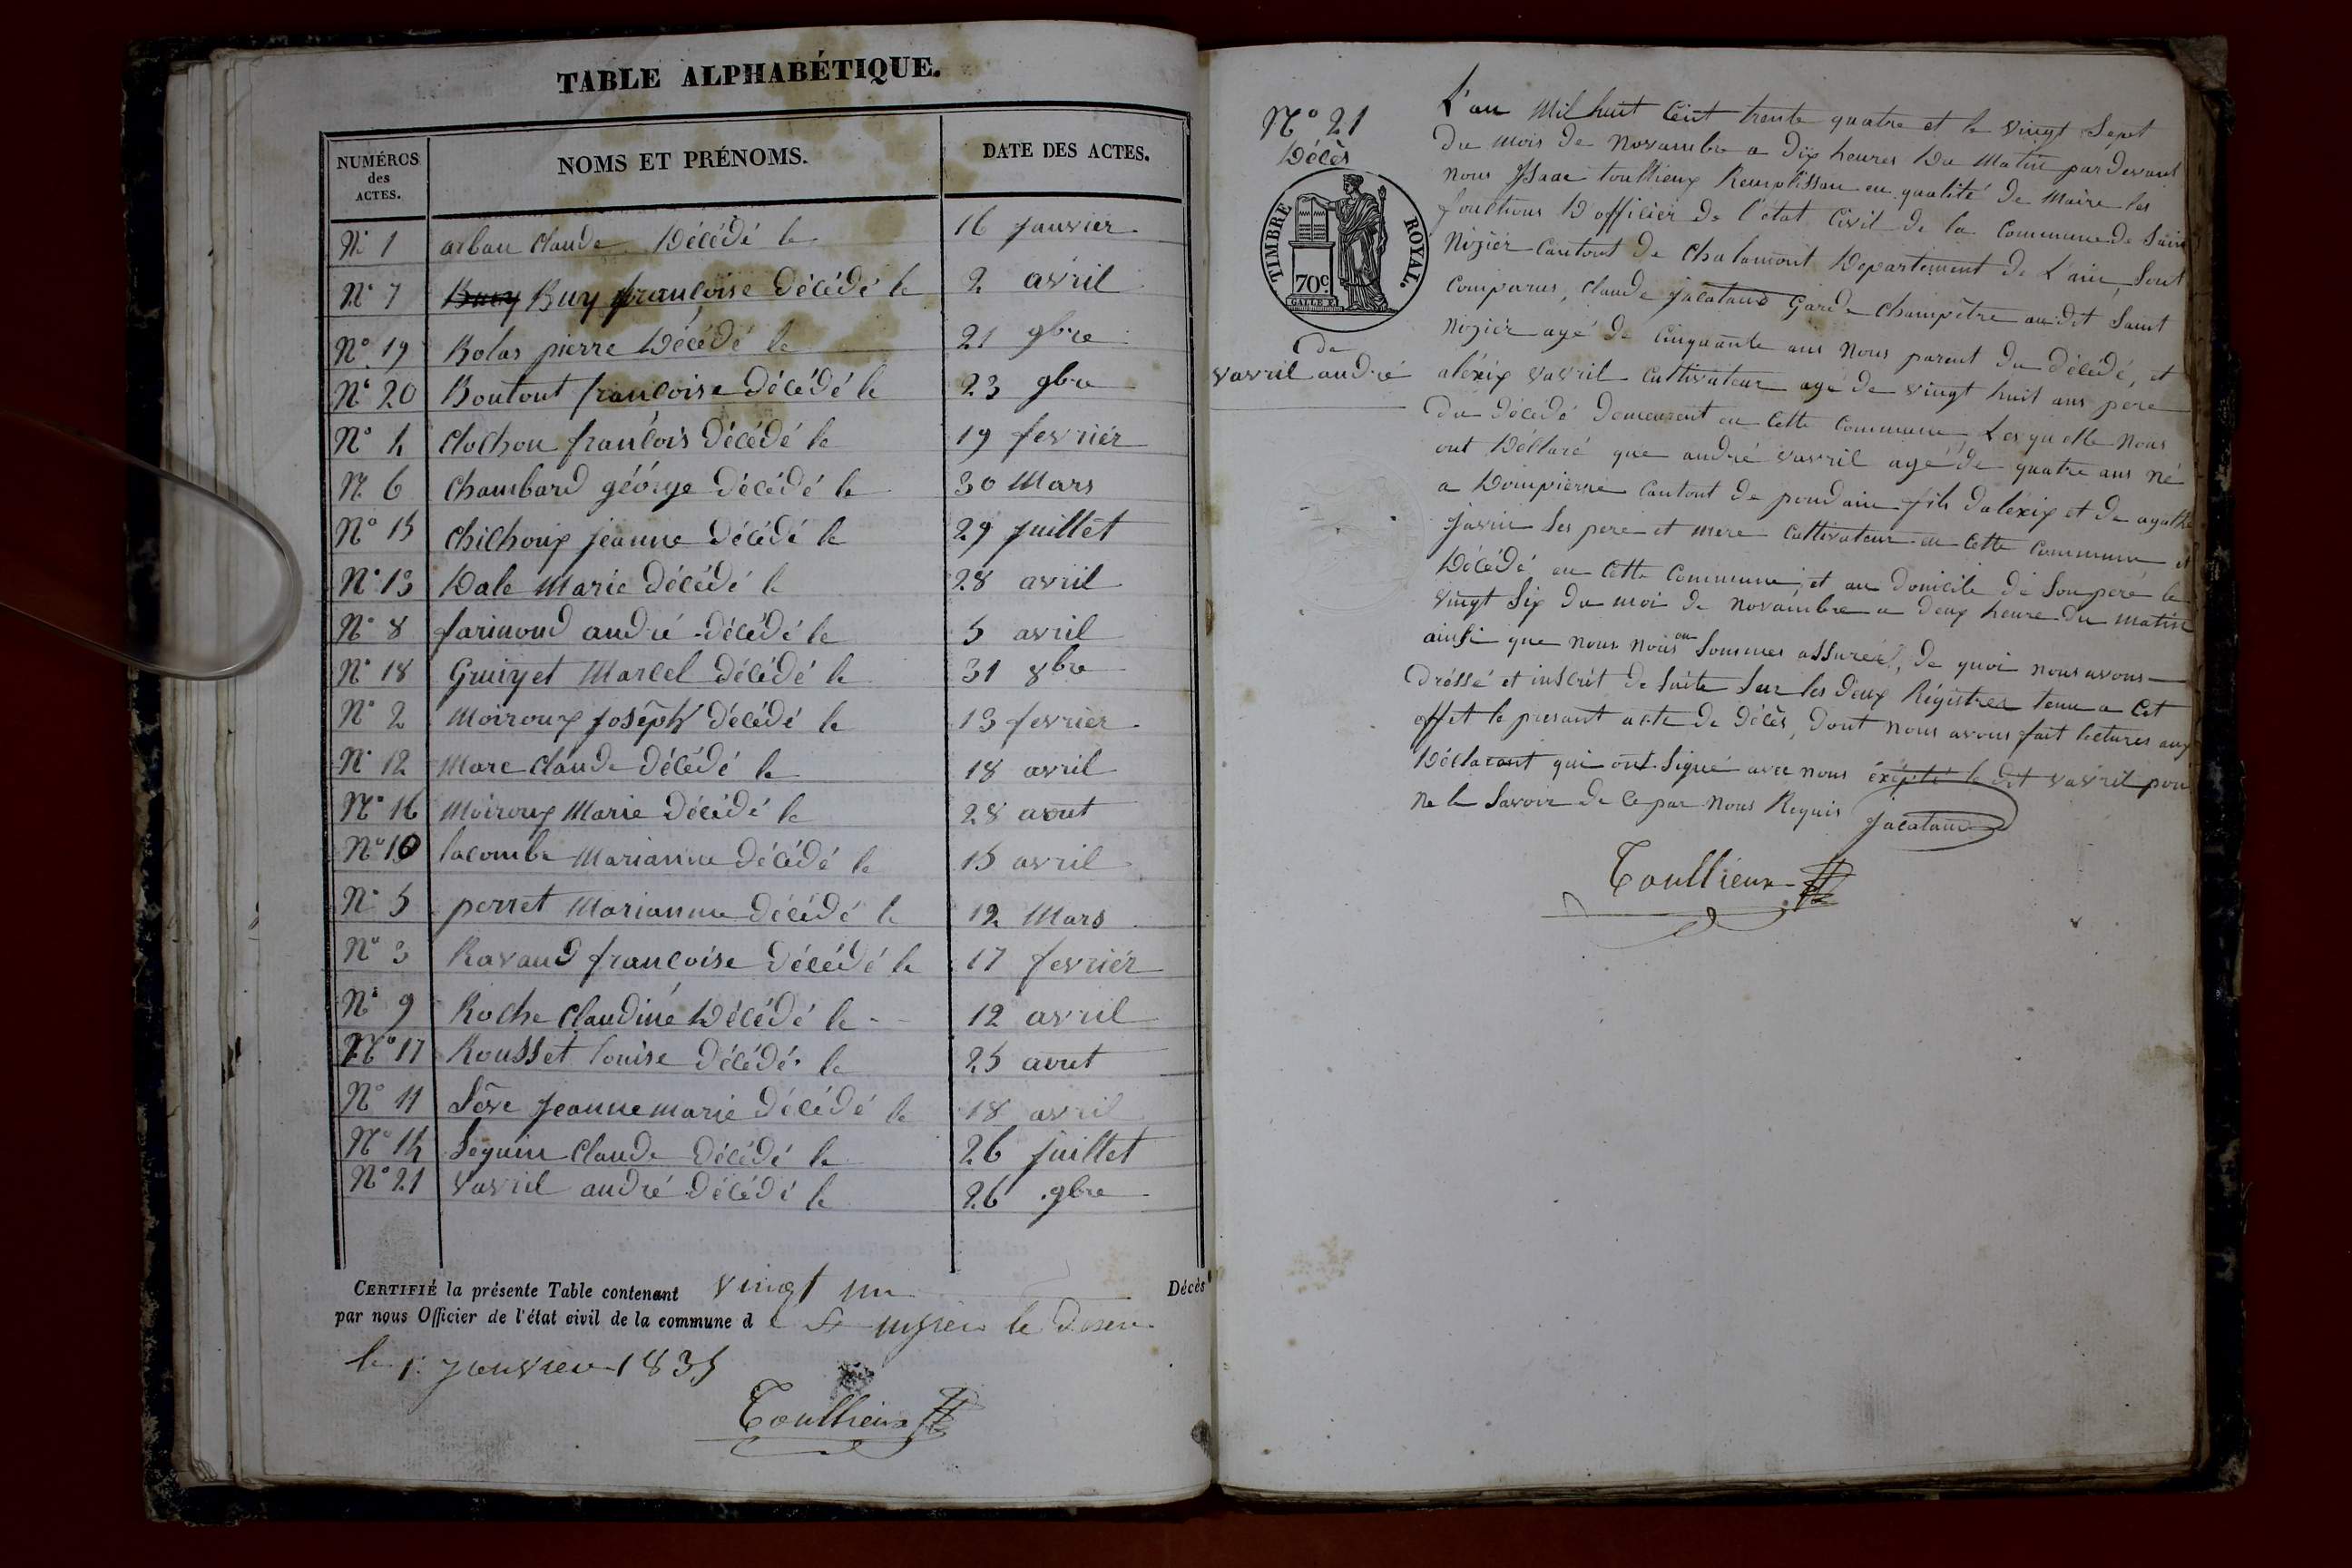 TABLE ALPHABÉTIQUE.
NUMÉROS des ACTES. NOMS ET PRÉNOMS. DATE DES ACTES.
N° 1 arban Claude Décédé le 16 janvier
N° 7 Buey Buy françoise décédé le 2 avril
N° 19 Bolas pierre Décédé le 21 9bre
N° 20 Boutout françoise décédé le 23 9bre
N° 4 Clochon françois décédé le 19 fevrier
N° 6 Chambard géorge décédé le 30 Mars
N° 15 Chilhoux jeanne décédé le 29 juillet
N° 13 Dale Marie décédé le 28 avril
N° 8 farimond andré décédé le 5 avril
N° 18 Gruiyet Marcel décédé le 31 8bre
N° 2 Moiroux joseph décédé le 13 fevrier
N° 12 Marc claude décédé le 18 avril
N° 16 Moiroux Marie décédé le 28 aout
N° 10 lacombe Marianne décédé le 15 avril
N° 5 perret Marianne décédé le 12 Mars
N° 3 Ravaud françoise décédé le 17 fevriér
N° 9 Roche Claudine Décédé le 12 avril
N° 17 Rousset louise décédé le 25 aout
N° 11 Séve jeanne marie décédé le 18 avril
N° 14 Seguin Claude décédé le 26 juillet
N° 21 vavril andré décédé le 26 9bre
CERTIFIÉ la présente Table contenant vingt un Décès
par nous Officier de l'état civil de la commune de St nizier le Désert
le 1 janvier 1835
Toullieux
N° 21
Décès
TIMBRE ROYAL.
70c.
de
vavril andré
L'an Mil huit Cent trente quatre et le vingt Sept
du mois de Novambre a dix heures du Matin par devant
nous Isaac toullieux Remplissan en qualité de Maire les
fonctions D'officier de l'état Civil de la Commune de Sain
Nizier Cantont de Chalamont Departement de L'ain, Sont
Comparus, Claude jacataud Garde Champêtre audit Saint
Nizier agé de Cinquante ans Nous parent du décédé, et
aléxix vavril Cultivateur agé de vingt huit ans pere
du décédé demeurent en Cette Commune, Lesquelle Nous
ont Déclaré que andré vavril agé de quatre ans Né
a Dompierre Cantont de pondain fils daléxix et de agathe
javrin Ses pere et mere Cultivateur en Cette Commune, et
Décédé en Cette Commune, et au Domicile de Son pere le
vingt Six du moi de novambre a deux heure du matin
ainsi que nous nous en Sommes assurée, de quoi nous avons
dréssé et inscrit de Suite Sur les deux Régistres tenu a Cet
effet le present acte de décès, dont nous avons fait lectures aux
Déclarant qui ont Signé avec nous éxépté le dit vavril pour
ne le Savoir de Ce par Nous Requis jacataud
Toullieux